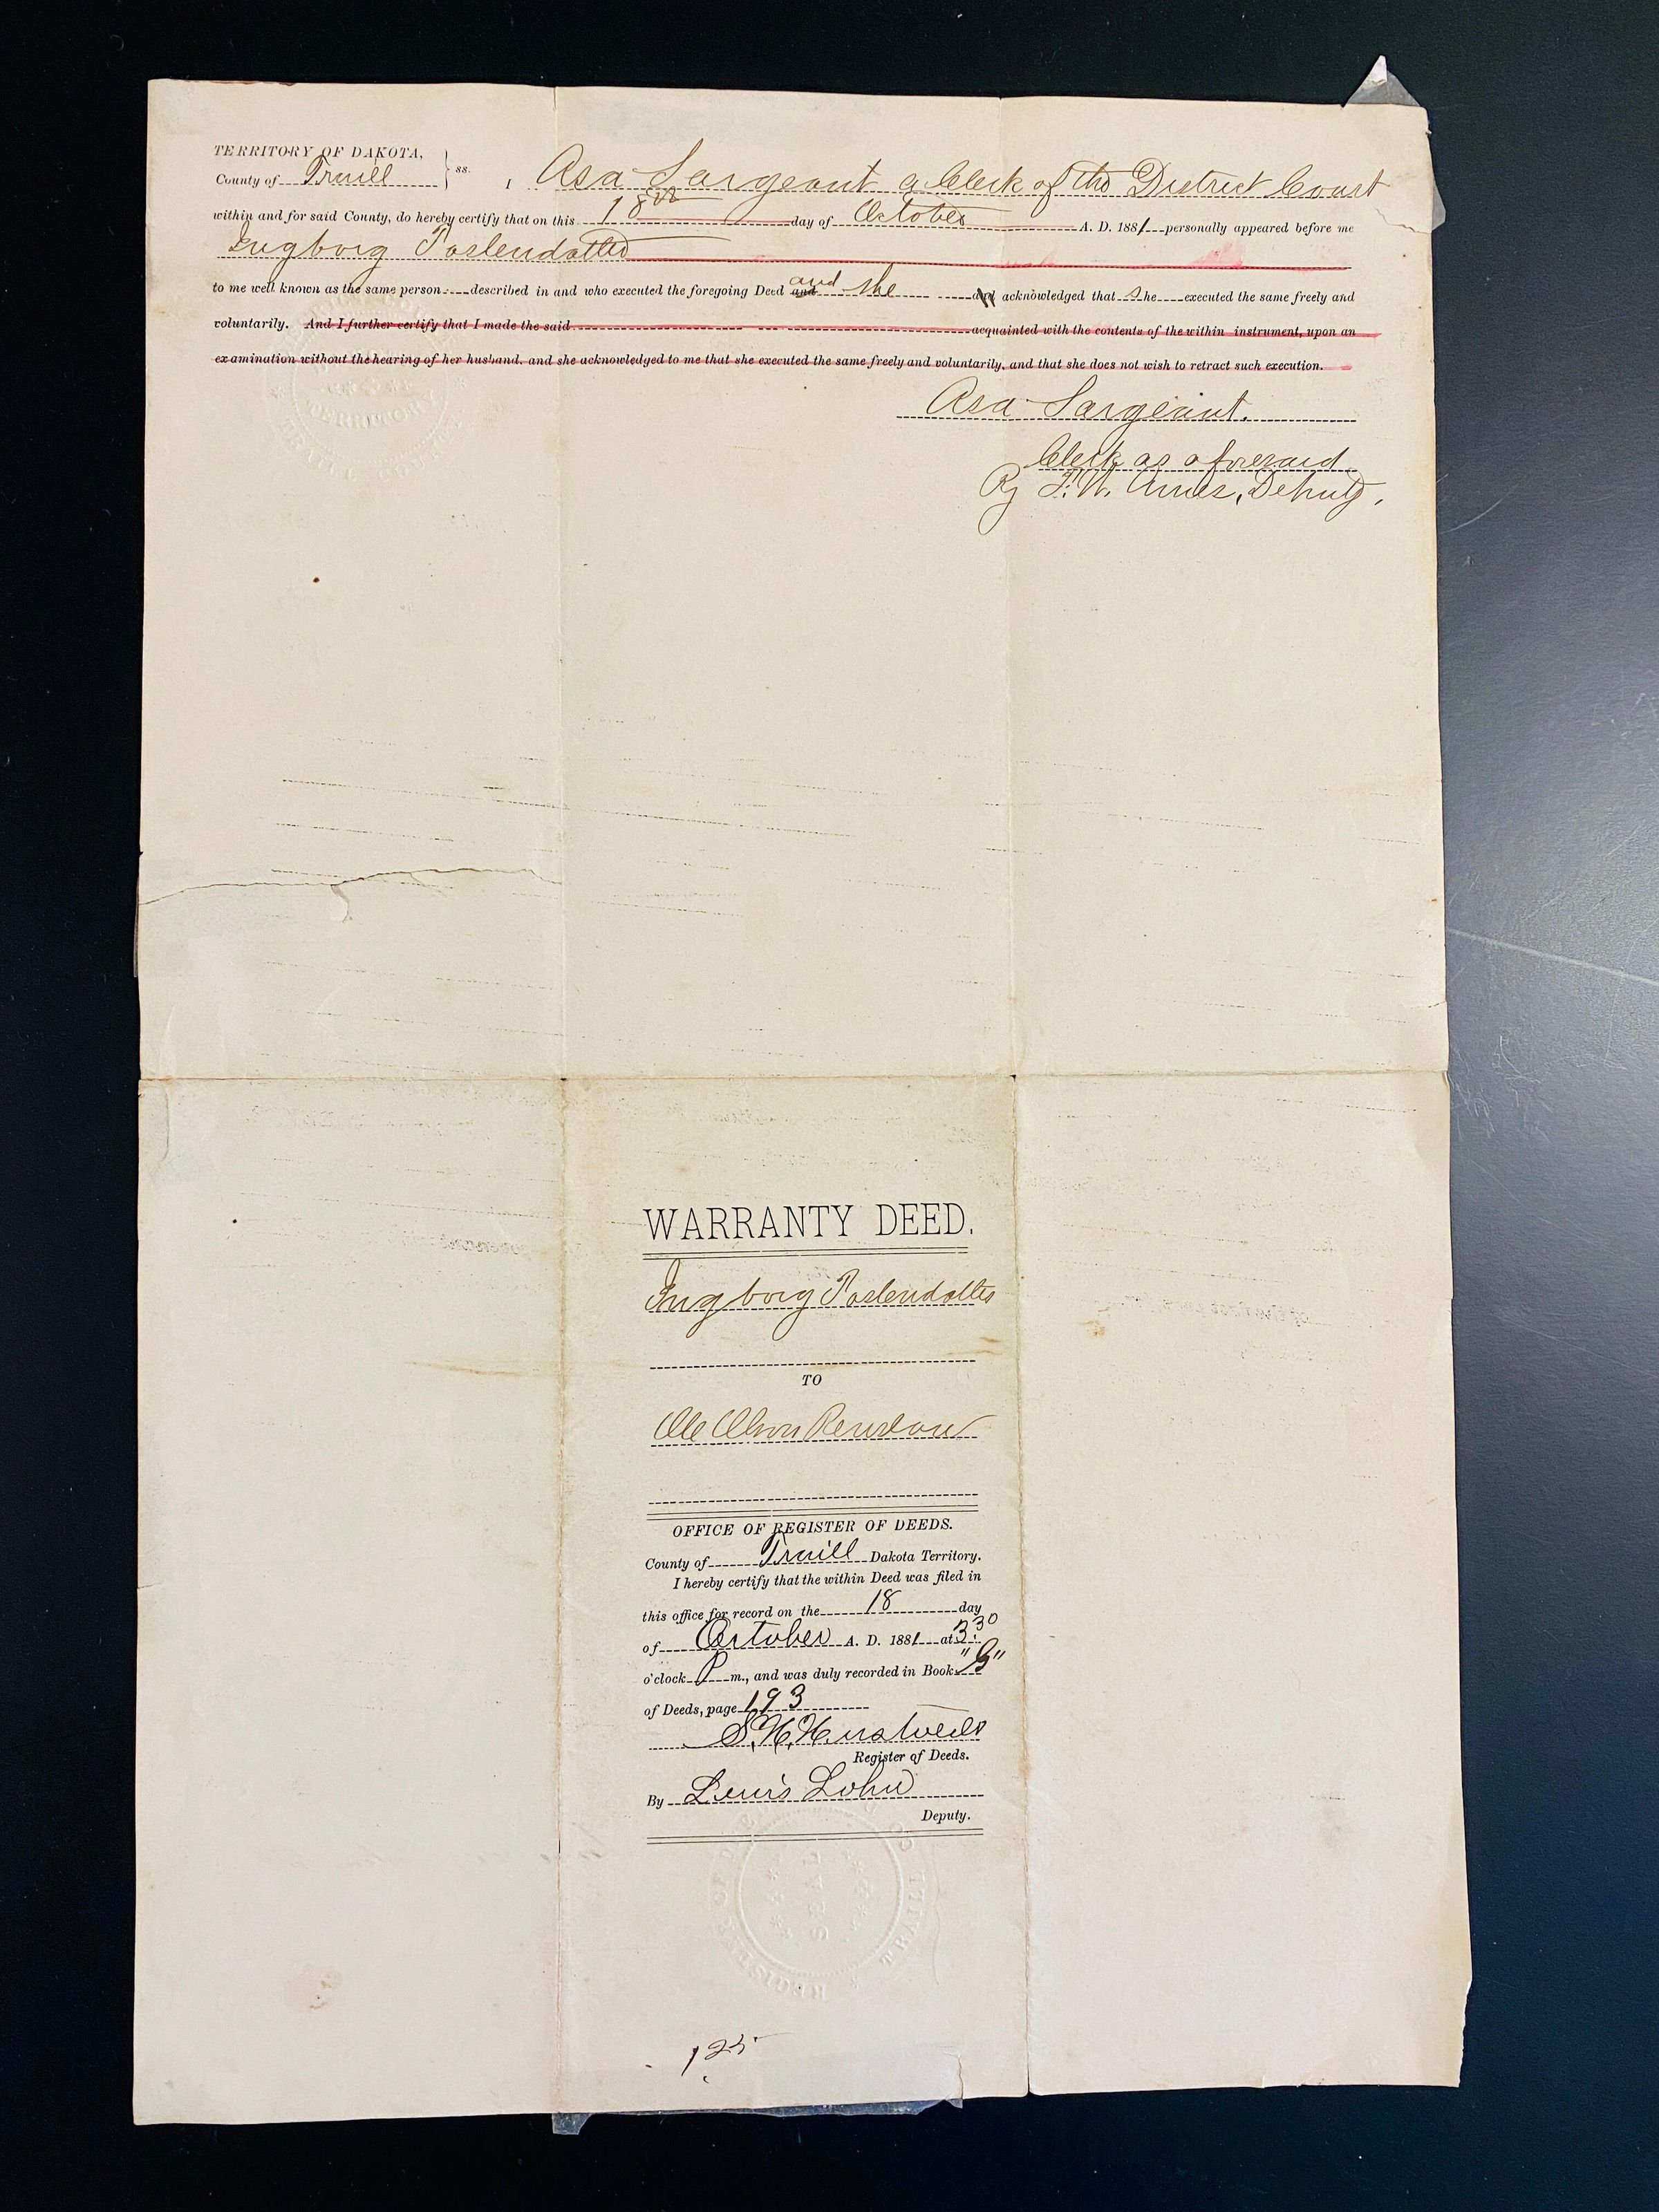 TERRITORY OF DAKOTA,
County of Traill ss. I Asa Sargeant a Clerk of the District Court
within and for said County, do hereby certify that on this 18th day of October A. D. 1881 personally appeared before me
Ingborg Toslendatter
to me well known as the same person described in and who executed the foregoing Deed and and she and acknowledged that she executed the same freely and
voluntarily. And I further certify that I made the said acquainted with the contents of the within instrument, upon an
examination without the hearing of her husband, and she acknowledged to me that she executed the same freely and voluntarily, and that she does not wish to retract such execution.
Asa Sargeant.
Clerk as aforesaid
By F. W. Ames, Deputy.
TERRITORY
WARRANTY DEED.
Ingborg Toslendatter
TO
Ole Olson
OFFICE OF REGISTER OF DEEDS.
County of Traill Dakota Territory.
I hereby certify that the within Deed was filed in
this office for record on the 18 day
of October A. D. 1881 at 3:30
o'clock P m., and was duly recorded in Book
of Deeds, page 193
Register of Deeds.
By Lewis Lohn
Deputy.
REGISTER OF DEEDS TRAILL CO
SEAL
125